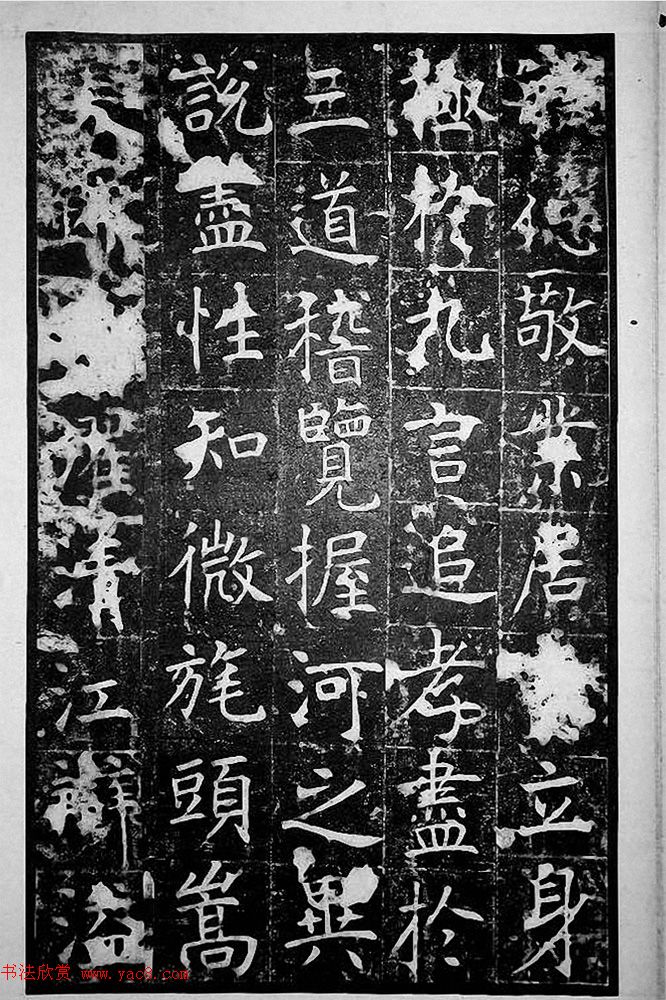 德敬業居立身
極於九言追孝盡於
三道稽覽握河之異
說盡性知微旄頭嵩
清江濟溢
书法欣赏 www.yac8.com